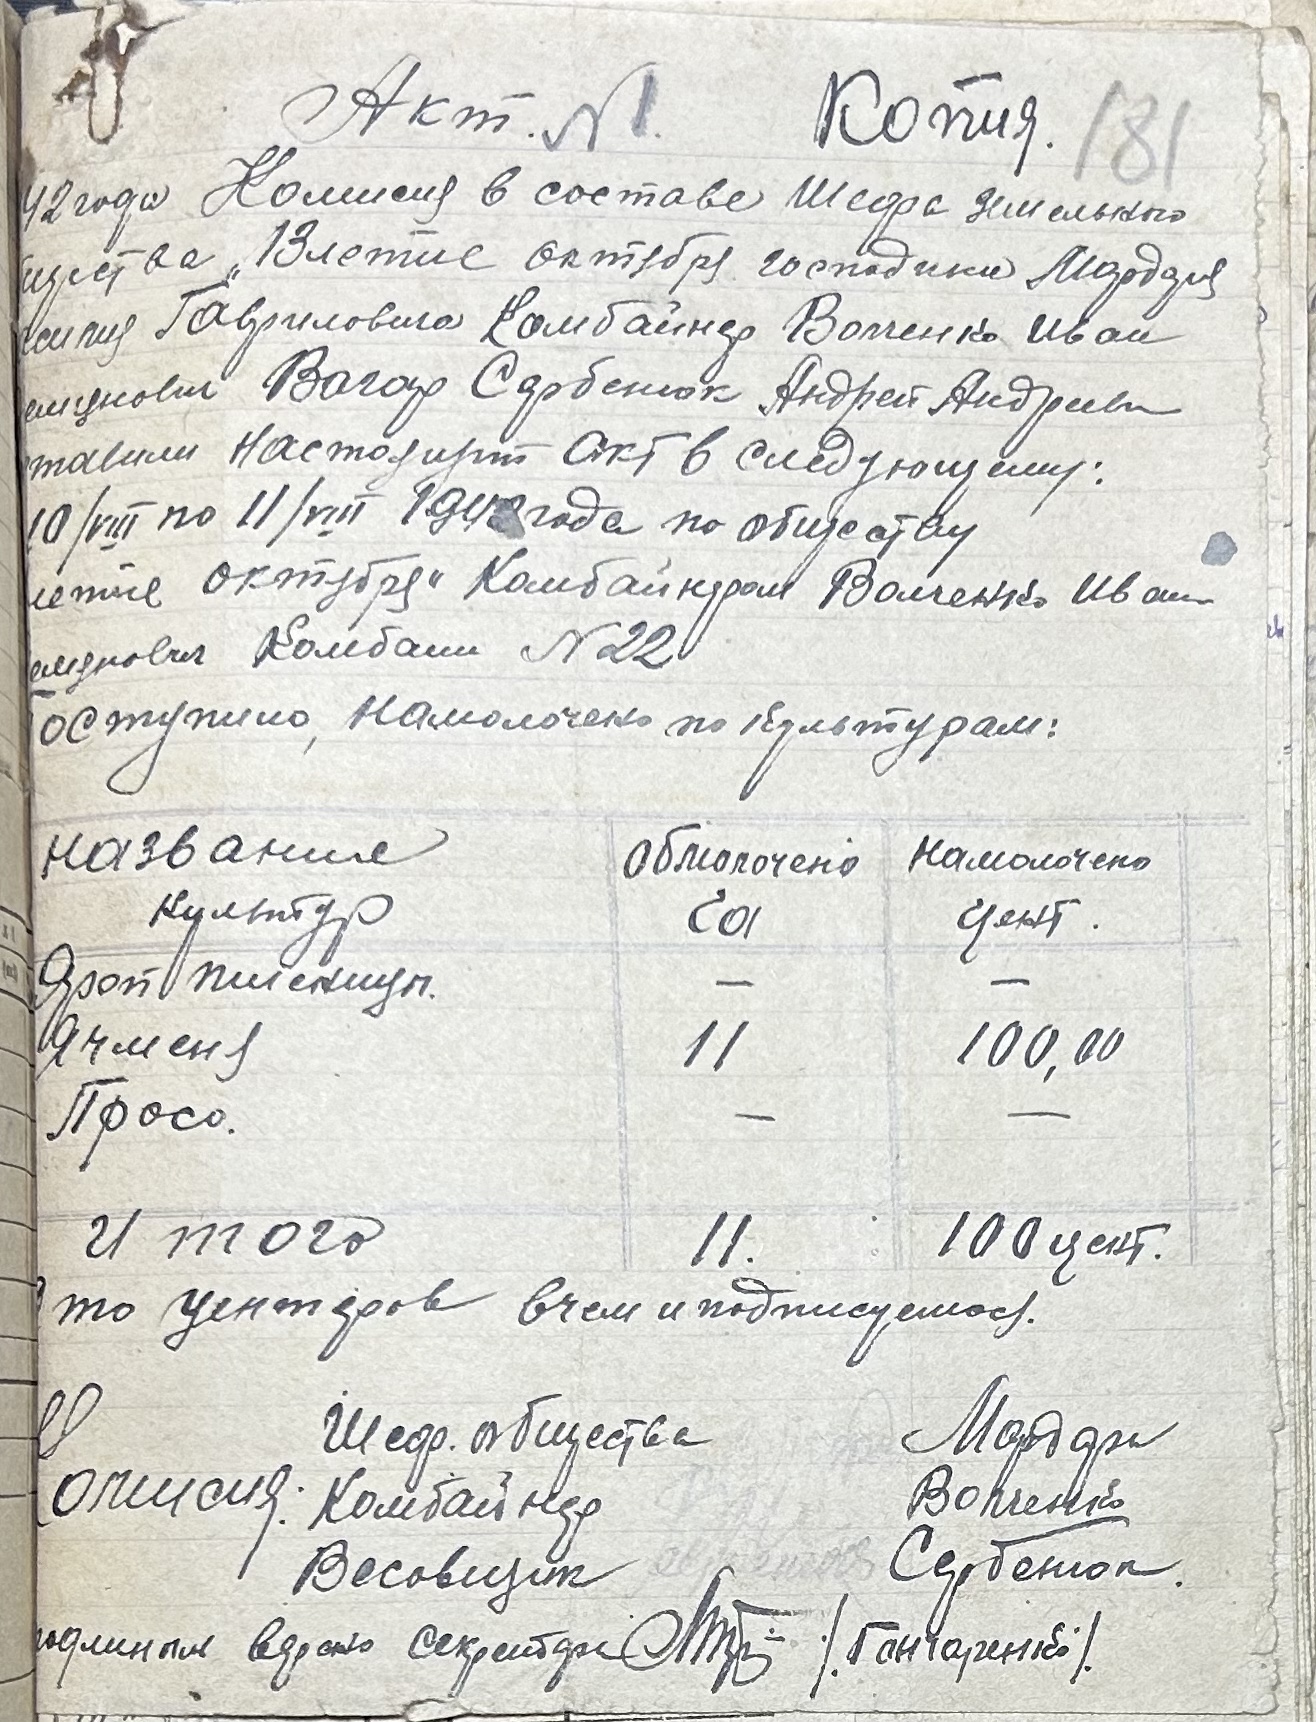 Акт. N 1. Копия. 181
42 года Комисия в составе Шефа земельного
щества „13 летие октября господина Мардаря
Гавриловича Комбайнер Волченко Иван
Вагар Сербенюк Андрей Андреевич
ставили настоящит акт в следующему:
10/VIII по 11/VIII 1942 года по обществу
летие октября" Комбайнером Волченко Иван
Комбаин N 22
оступило, намолочено по культурам:
названия Обмолочено намолочено
культур га цент.
Яроп пшеницы. — —
Ячменя 11 100,00
Просо. — —
Итого 11. 100 цент.
то центеров в чем и подписуемося.
Шеф. общества Мардарь
омисия: Комбайнер Волченко
Весовщик Сербенюк.
одлиным верно секретарь /Гончаренко/.